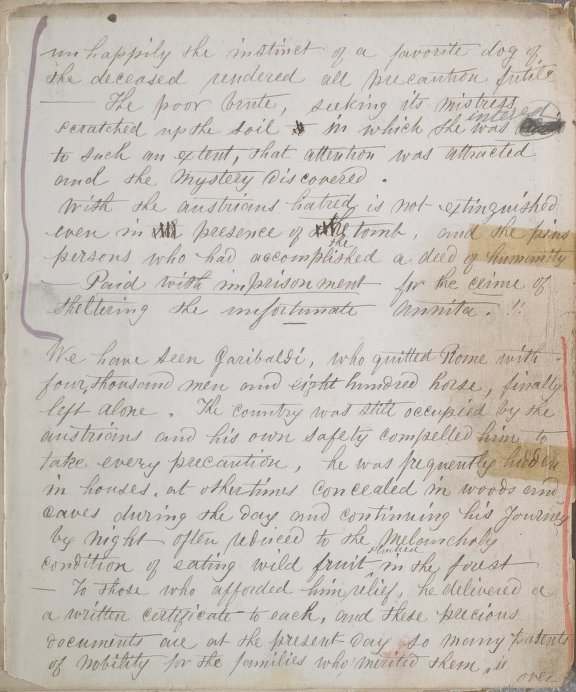 unhappily the instinct of a favorite dog of
the deceased rendered all precaution futile
— The poor brute, seeking its mistress
scratched up the soil in which she was interred
to such an extent, that attention was attracted
and the mystery discovered.
With the austrians hatred is not extinguished
even in presence of the tomb, and the pius
persons who had accomplished a deed of humanity
— Paid with imprisonment for the crime of
sheltering the unfortunate Annita. !!
We have seen Garibaldi, who quitted Rome with
four thousand men and eight hundred horse, finally
left alone. The country was still occupied by the
austrians and his own safety compelled him to
take every precaution, he was frequently hidden
in houses, at other times concealed in woods and
caves during the day and continuing his Journey
by night often reduced to the melancholy
condition of eating wild fruit in the forest
— To those who afforded him relief, he delivered a
a written certificate to each, and these precious
documents are at the present day so many patents
of nobility for the families who merited them.
over